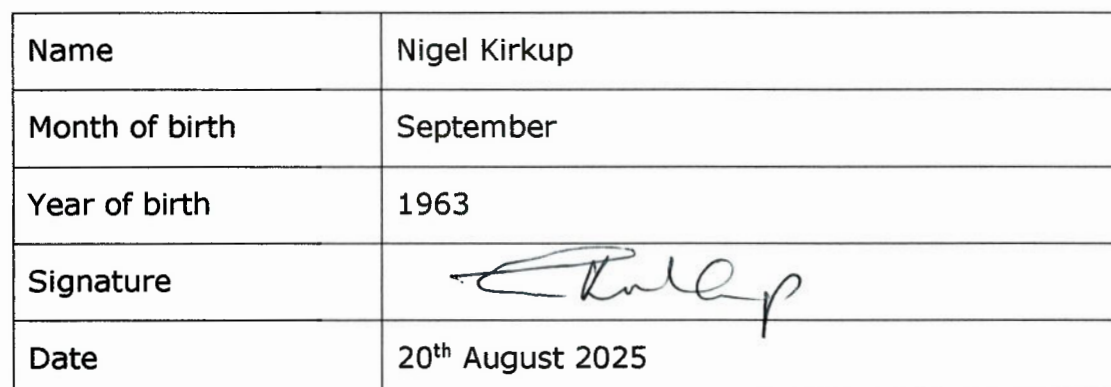 Name Nigel Kirkup
Month of birth September
Year of birth 1963
Signature
Date 20th August 2025